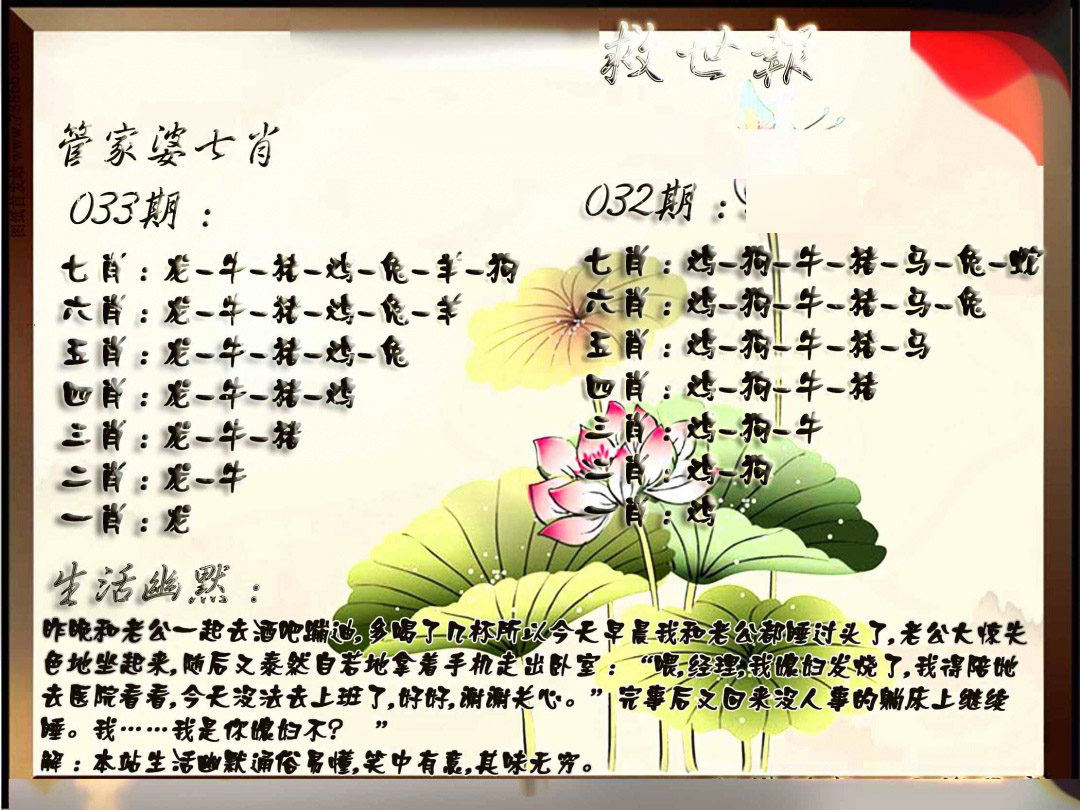 救世報
管家婆七肖
033期：
七肖：龙-牛-猪-鸡-兔-羊-狗
六肖：龙-牛-猪-鸡-兔-羊
五肖：龙-牛-猪-鸡-兔
四肖：龙-牛-猪-鸡
三肖：龙-牛-猪
二肖：龙-牛
一肖：龙
032期：
七肖：鸡-狗-牛-猪-马-兔-蛇
六肖：鸡-狗-牛-猪-马-兔
五肖：鸡-狗-牛-猪-马
四肖：鸡-狗-牛-猪
三肖：鸡-狗-牛
二肖：鸡-狗
一肖：鸡
生活幽默：
昨晚和老公一起去酒吧蹦迪,多喝了几杯所以今天早晨我和老公都睡过头了,老公大惊失
色地坐起来,随后又泰然自若地拿着手机走出卧室：“喂,经理,我媳妇发烧了,我得陪她
去医院看看,今天没法去上班了,好好,谢谢关心。”完事后又回来没人事的躺床上继续
睡。我……我是你媳妇不？ ”
解：本站生活幽默通俗易懂,笑中有意,其味无穷。